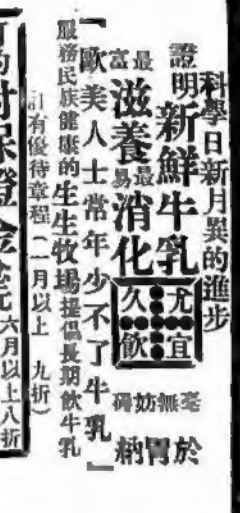 科學日新月異的進步
證明新鮮牛乳
尤宜
久飲
最富滋養最易消化
毫無妨碍
於胃納
「歐美人士常年少不了牛乳」
服務民族健康的生生牧場提倡長期飲牛乳
訂有優待章程(一月以上 九折)
六月以上八折